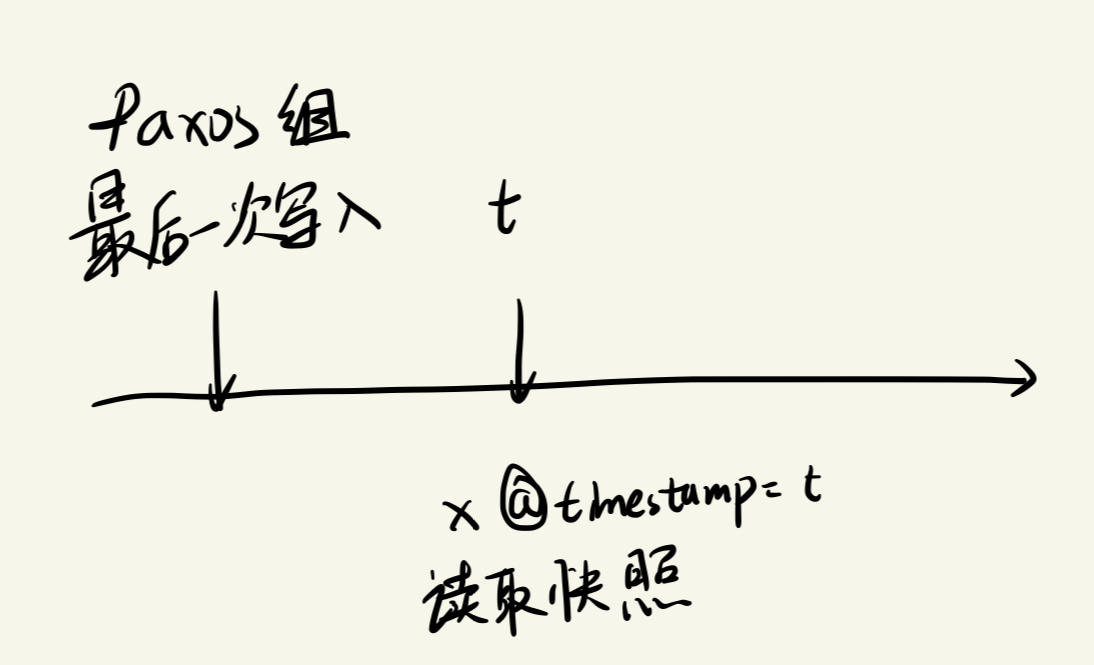 Paxos组
最后一次写入
t
x @timestamp=t
读取快照